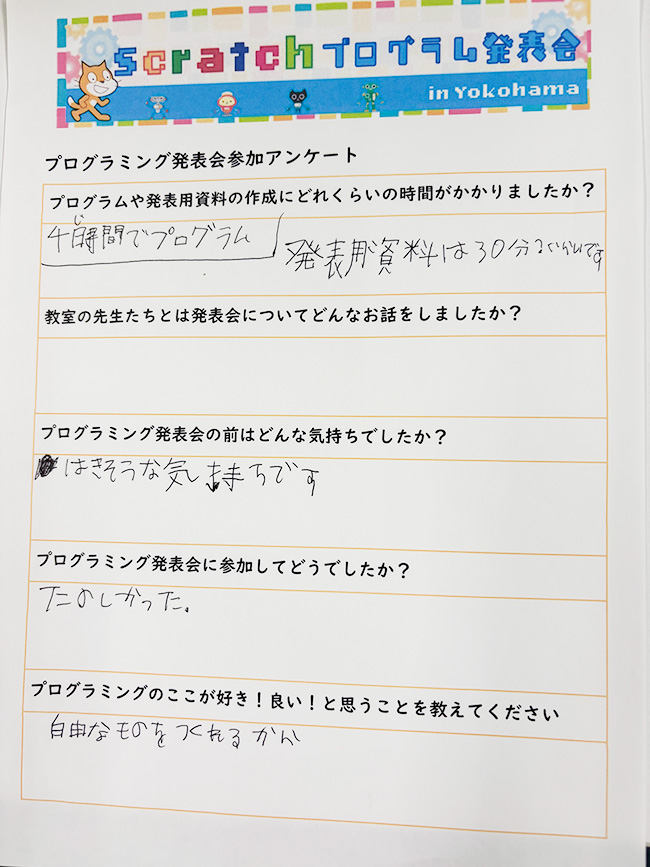 Scratchプログラム発表会
in Yokohama
プログラミング発表会参加アンケート
プログラムや発表用資料の作成にどれくらいの時間がかかりましたか?
時間でプログラム
発表用資料は30分
教室の先生たちとは発表会についてどんなお話をしましたか?
プログラミング発表会の前はどんな気持ちでしたか?
はきそうな気持ちです
プログラミング発表会に参加してどうでしたか?
たのしかった。
プログラミングのここが好き!良い!と思うことを教えてください
自由なものをつくれるかん